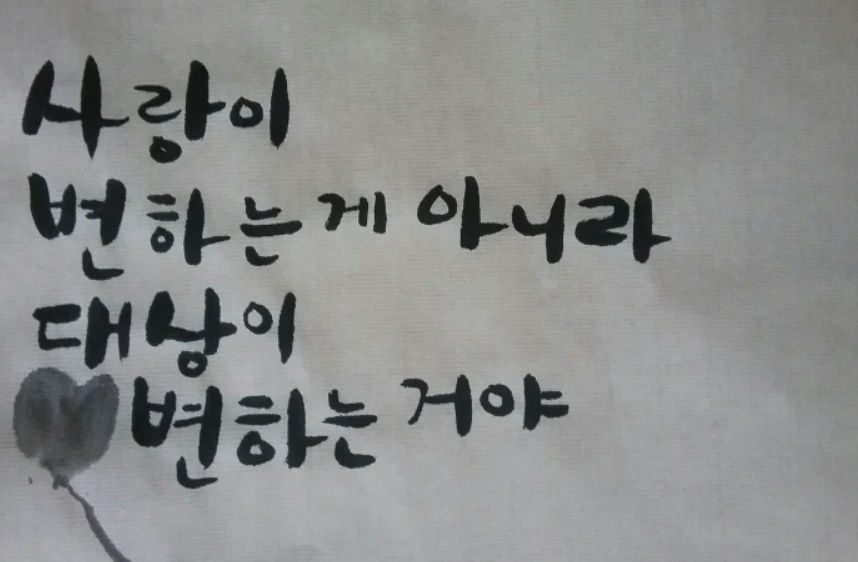 사랑이
변하는게 아니라
대상이
변하는거야